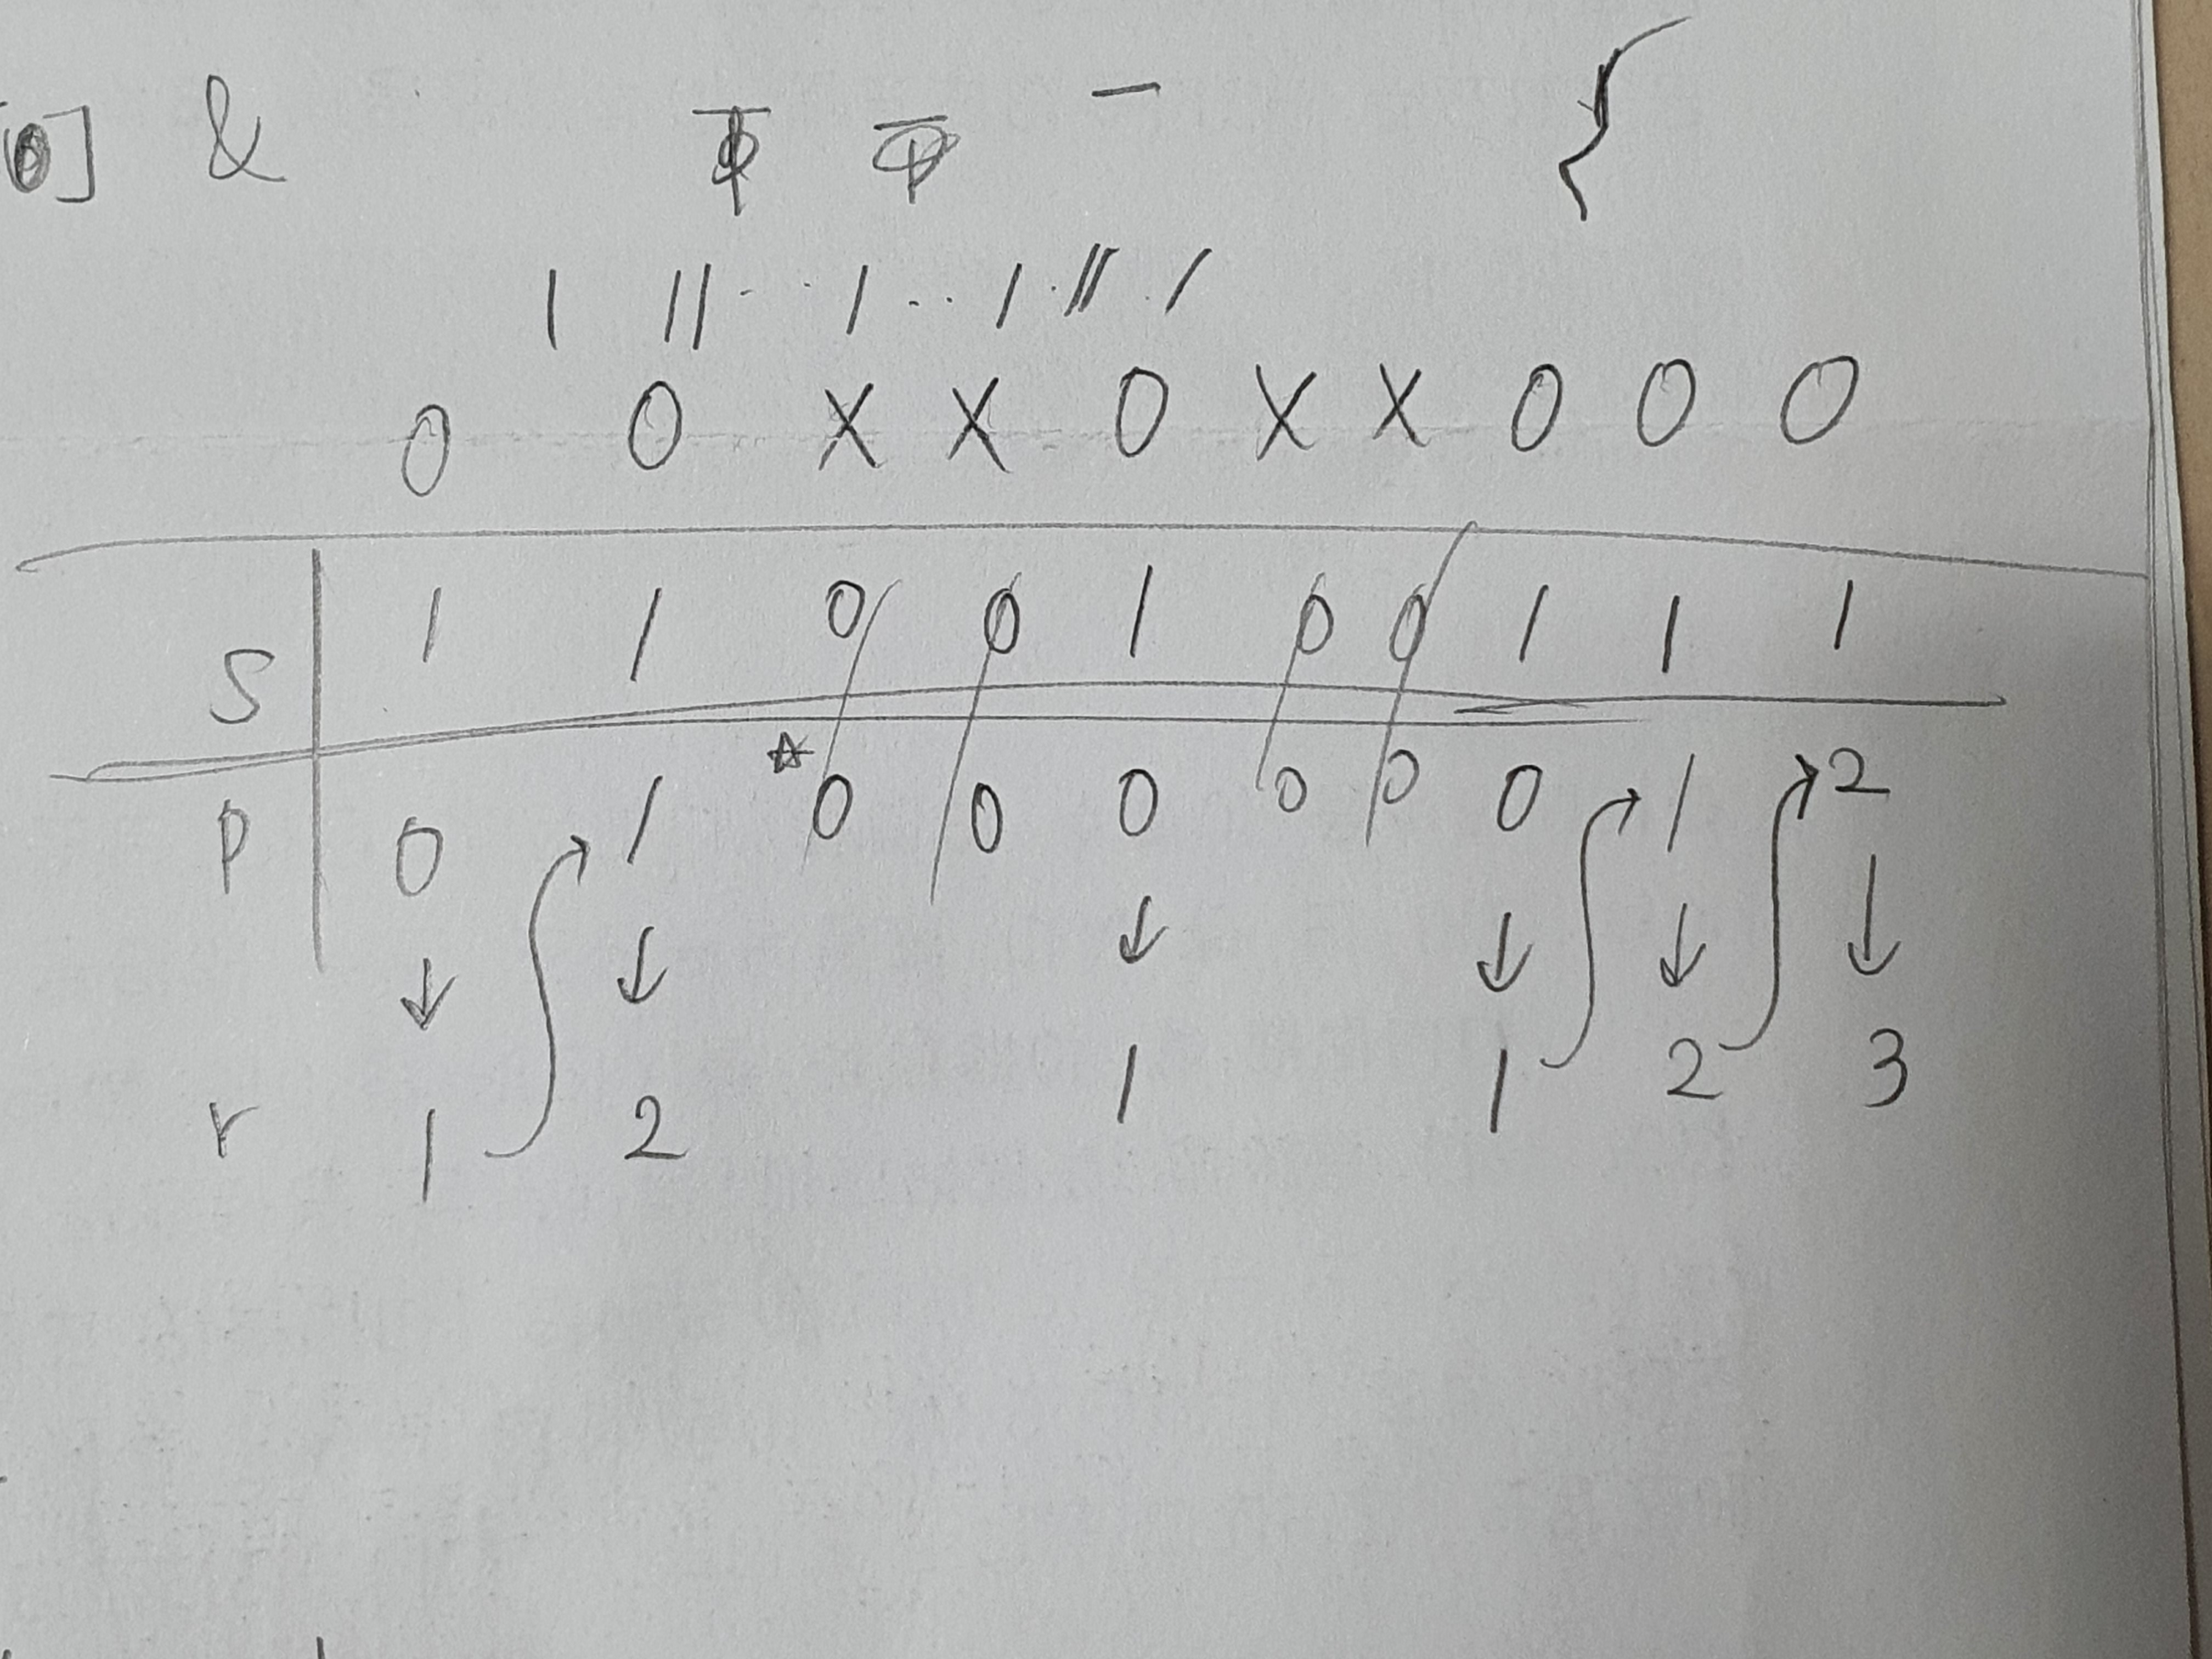 0] & Φ Φ — {
1 11 · · 1 · · 1 · 11 · 1
0 0 X X 0 X X 0 0 0
S 1 1 0 0 1 0 0 1 1 1
P 0 1 ☆ 0 0 0 0 0 0 1 2
↓ ↓ ↓ ↓ ↓ ↓
r 1 2 1 1 2 3